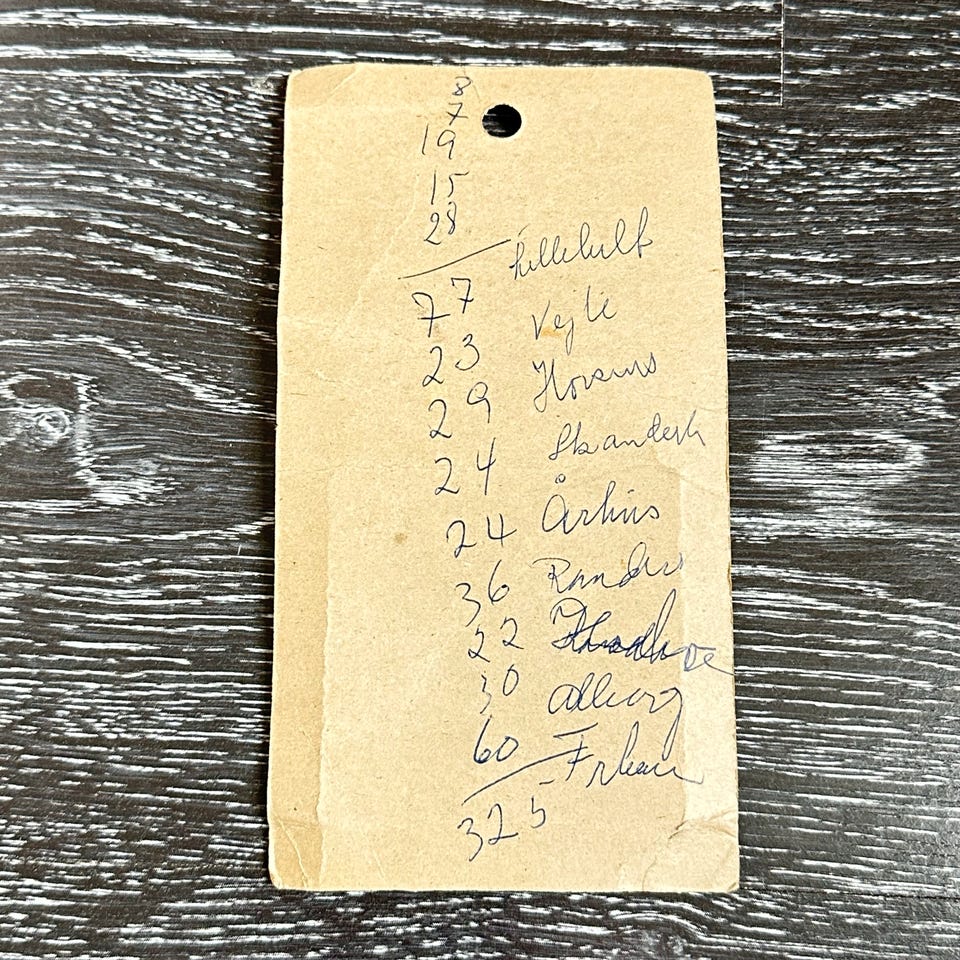 8
7
19
15
28
77 Lillebælt
23 Vejle
29 Horsens
24 Skanderb
24 Århus
36 Randers
22
30 Ålborg
60 Frhavn
325